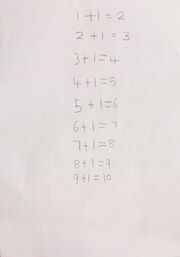 1 + 1 = 2
2 + 1 = 3
3 + 1 = 4
4 + 1 = 5
5 + 1 = 6
6 + 1 = 7
7 + 1 = 8
8 + 1 = 9
9 + 1 = 10